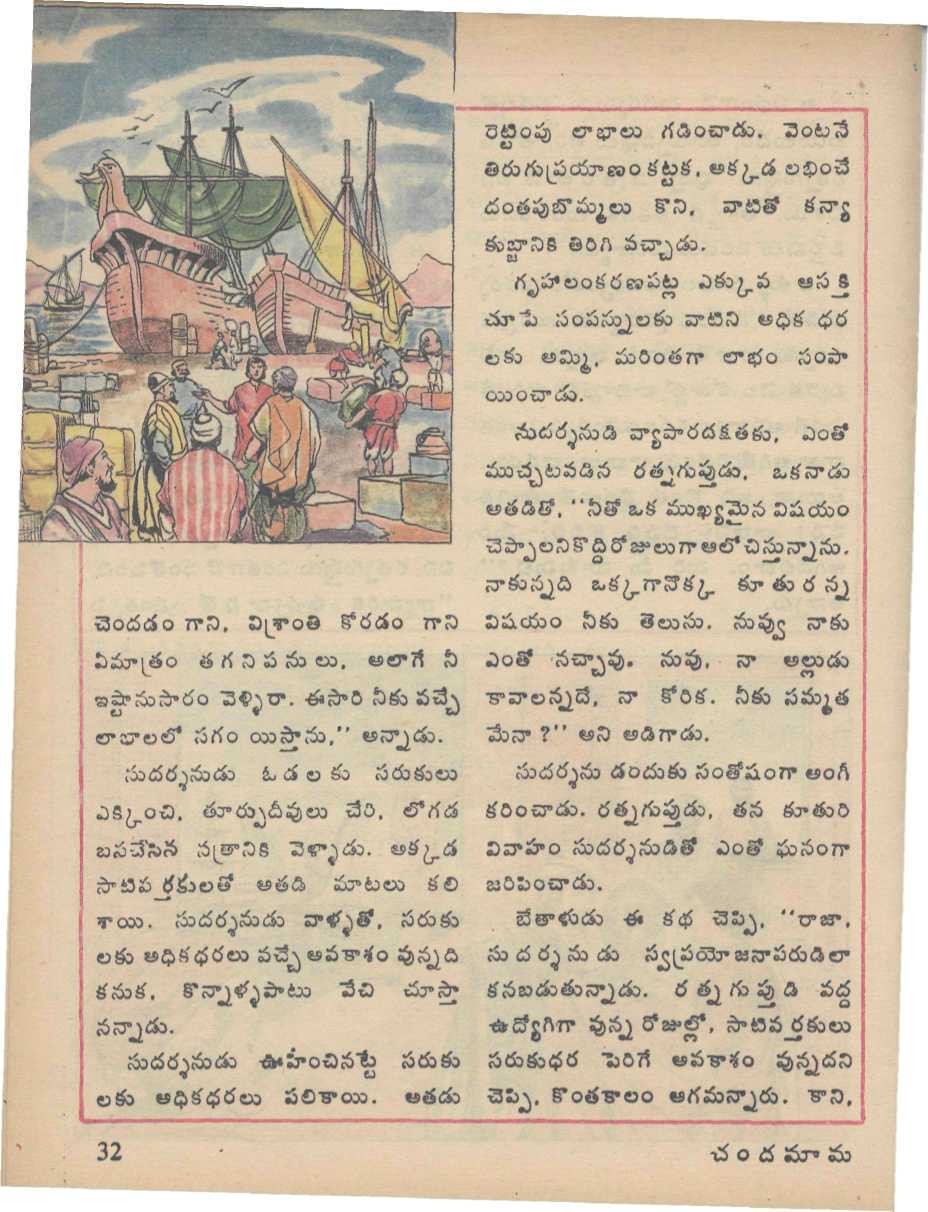 చెందడం గాని, విశ్రాంతి కోరడం గాని
ఏమాత్రం తగనిపనులు, అలాగే నీ
ఇష్టానుసారం వెళ్ళిరా. ఈసారి నీకు వచ్చే
లాభాలలో సగం యిస్తాను,'' అన్నాడు.
సుదర్శనుడు ఓడలకు సరుకులు
ఎక్కించి, తూర్పుదీవులు చేరి, లోగడ
బసచేసిన సత్రానికి వెళ్ళాడు. అక్కడ
సాటివర్తకులతో అతడి మాటలు కలి
శాయి. సుదర్శనుడు వాళ్ళతో, సరుకు
లకు అధికధరలు వచ్చే అవకాశం వున్నది
కనుక, కొన్నాళ్ళపాటు వేచి చూస్తా
నన్నాడు.
సుదర్శనుడు ఊహించినట్టే సరుకు
లకు అధికధరలు పలికాయి. అతడు
రెట్టింపు లాభాలు గడించాడు. వెంటనే
తిరుగుప్రయాణం కట్టక, అక్కడ లభించే
దంతపుబొమ్మలు కొని, వాటితో కన్యా
కుబ్జానికి తిరిగి వచ్చాడు.
గృహాలంకరణపట్ల ఎక్కువ ఆసక్తి
చూపే సంపన్నులకు వాటిని అధిక ధర
లకు అమ్మి, మరింతగా లాభం సంపా
యించాడు.
సుదర్శనుడి వ్యాపారదక్షతకు, ఎంతో
ముచ్చటపడిన రత్నగుప్తుడు, ఒకనాడు
అతడితో, ''నీతో ఒక ముఖ్యమైన విషయం
చెప్పాలనికొద్దిరోజులుగా ఆలోచిస్తున్నాను.
నాకున్నది ఒక్కగానొక్క కూతురన్న
విషయం నీకు తెలుసు. నువ్వు నాకు
ఎంతో నచ్చావు. నువు, నా అల్లుడు
కావాలన్నదే, నా కోరిక. నీకు సమ్మత
మేనా ?'' అని అడిగాడు.
సుదర్శను డందుకు సంతోషంగా అంగీ
కరించాడు. రత్నగుప్తుడు, తన కూతురి
వివాహం సుదర్శనుడితో ఎంతో ఘనంగా
జరిపించాడు.
బేతాళుడు ఈ కథ చెప్పి, ''రాజా,
సుదర్శనుడు స్వప్రయోజనాపరుడిలా
కనబడుతున్నాడు. రత్నగుప్తుడి వద్ద
ఉద్యోగిగా వున్న రోజుల్లో, సాటివర్తకులు
సరుకుధర పెరిగే అవకాశం వున్నదని
చెప్పి, కొంతకాలం ఆగమన్నారు. కాని,
32
చందమామ